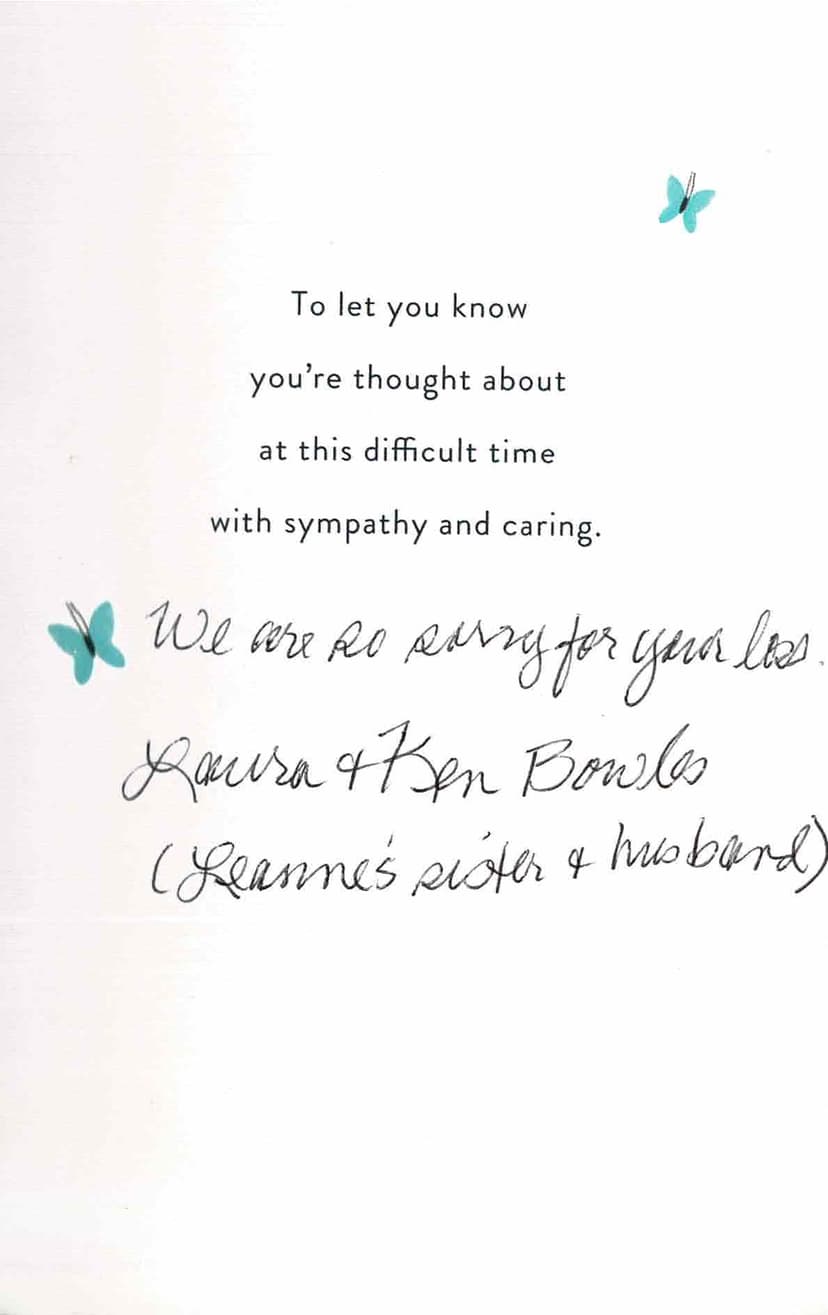 To let you know
you're thought about
at this difficult time
with sympathy and caring.
We are so sorry for your loss.
Laura & Ken Bowles
(Leanne's sister & husband)